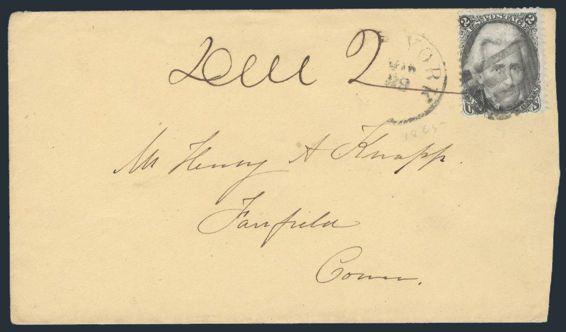 Due 2
YORK
29
2 U.S. POSTAGE 2
Mr Henry A Knapp.
Fairfield
Conn.